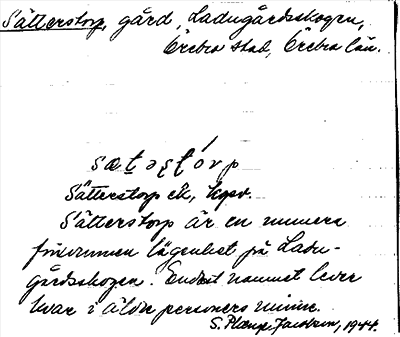 Sätterstorp, gård, Ladugårdsskogen,
Örebro stad, Örebro län.
sætəʂʈórp
Sätterstorp ek, kapv.
Sätterstorp är en numera
försvunnen lägenhet på Ladu-
gårdsskogen. Endast namnet lever
kvar i äldre personers minne.
S. Jacobson, 1944.